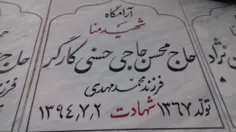 آرامگاه
شهید منا
حاج محسن حاجی حسنی کارگر
فرزند محمد مهدی
تولد ۱۳۶۷ شهادت ۱۳۹۴،۷،۲